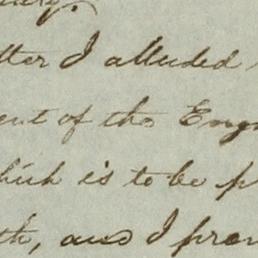 tter I alluded
ent of the Eng
hich is to be p
th, and I pro